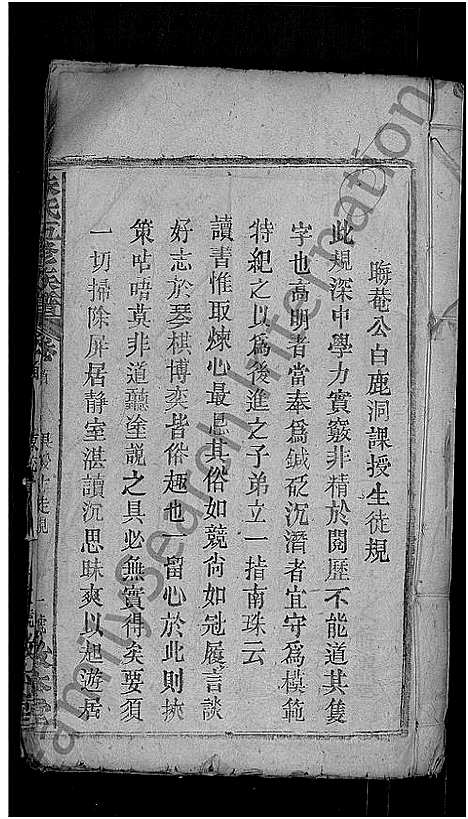 晦菴公白鹿洞課授生徒規
此規深中學力實竅非精於閱歷不能道其隻
字也高明者當奉爲鍼砭沉潛者宜守爲模範
特紀之以爲後進之子弟立一指南珠云
讀書惟取煉心最忌其俗如競尙如冠履言談
好志於琴棋博奕皆俗趣也一留心於此則挾
策呫唔莫非道聽塗說之具必無實得矣要須
一切掃除屛居静室湛讀沉思昧爽以起遊居
氏五修族譜
卷首
familysearch International